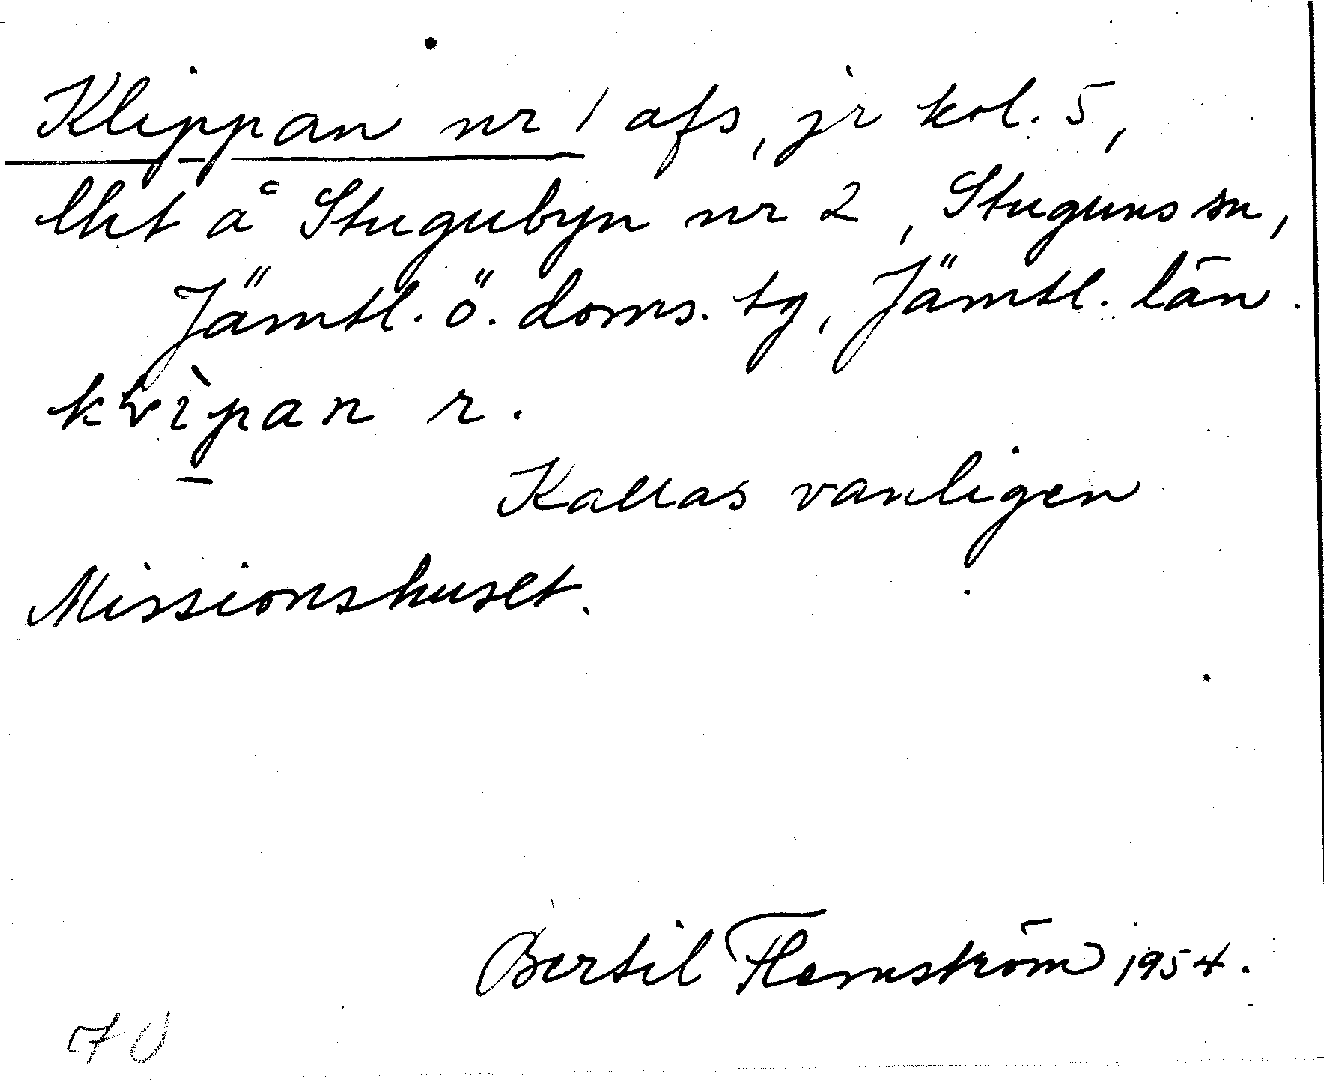 Klippan nr 1 afs, jr kol. 5,
lht å Stugubyn nr 2, Stuguns sn,
Jämtl. ö. doms. tg, Jämtl. län.
pan r.
Kallas vanligen
Missionshuset.
Bertil Flemström 1954.